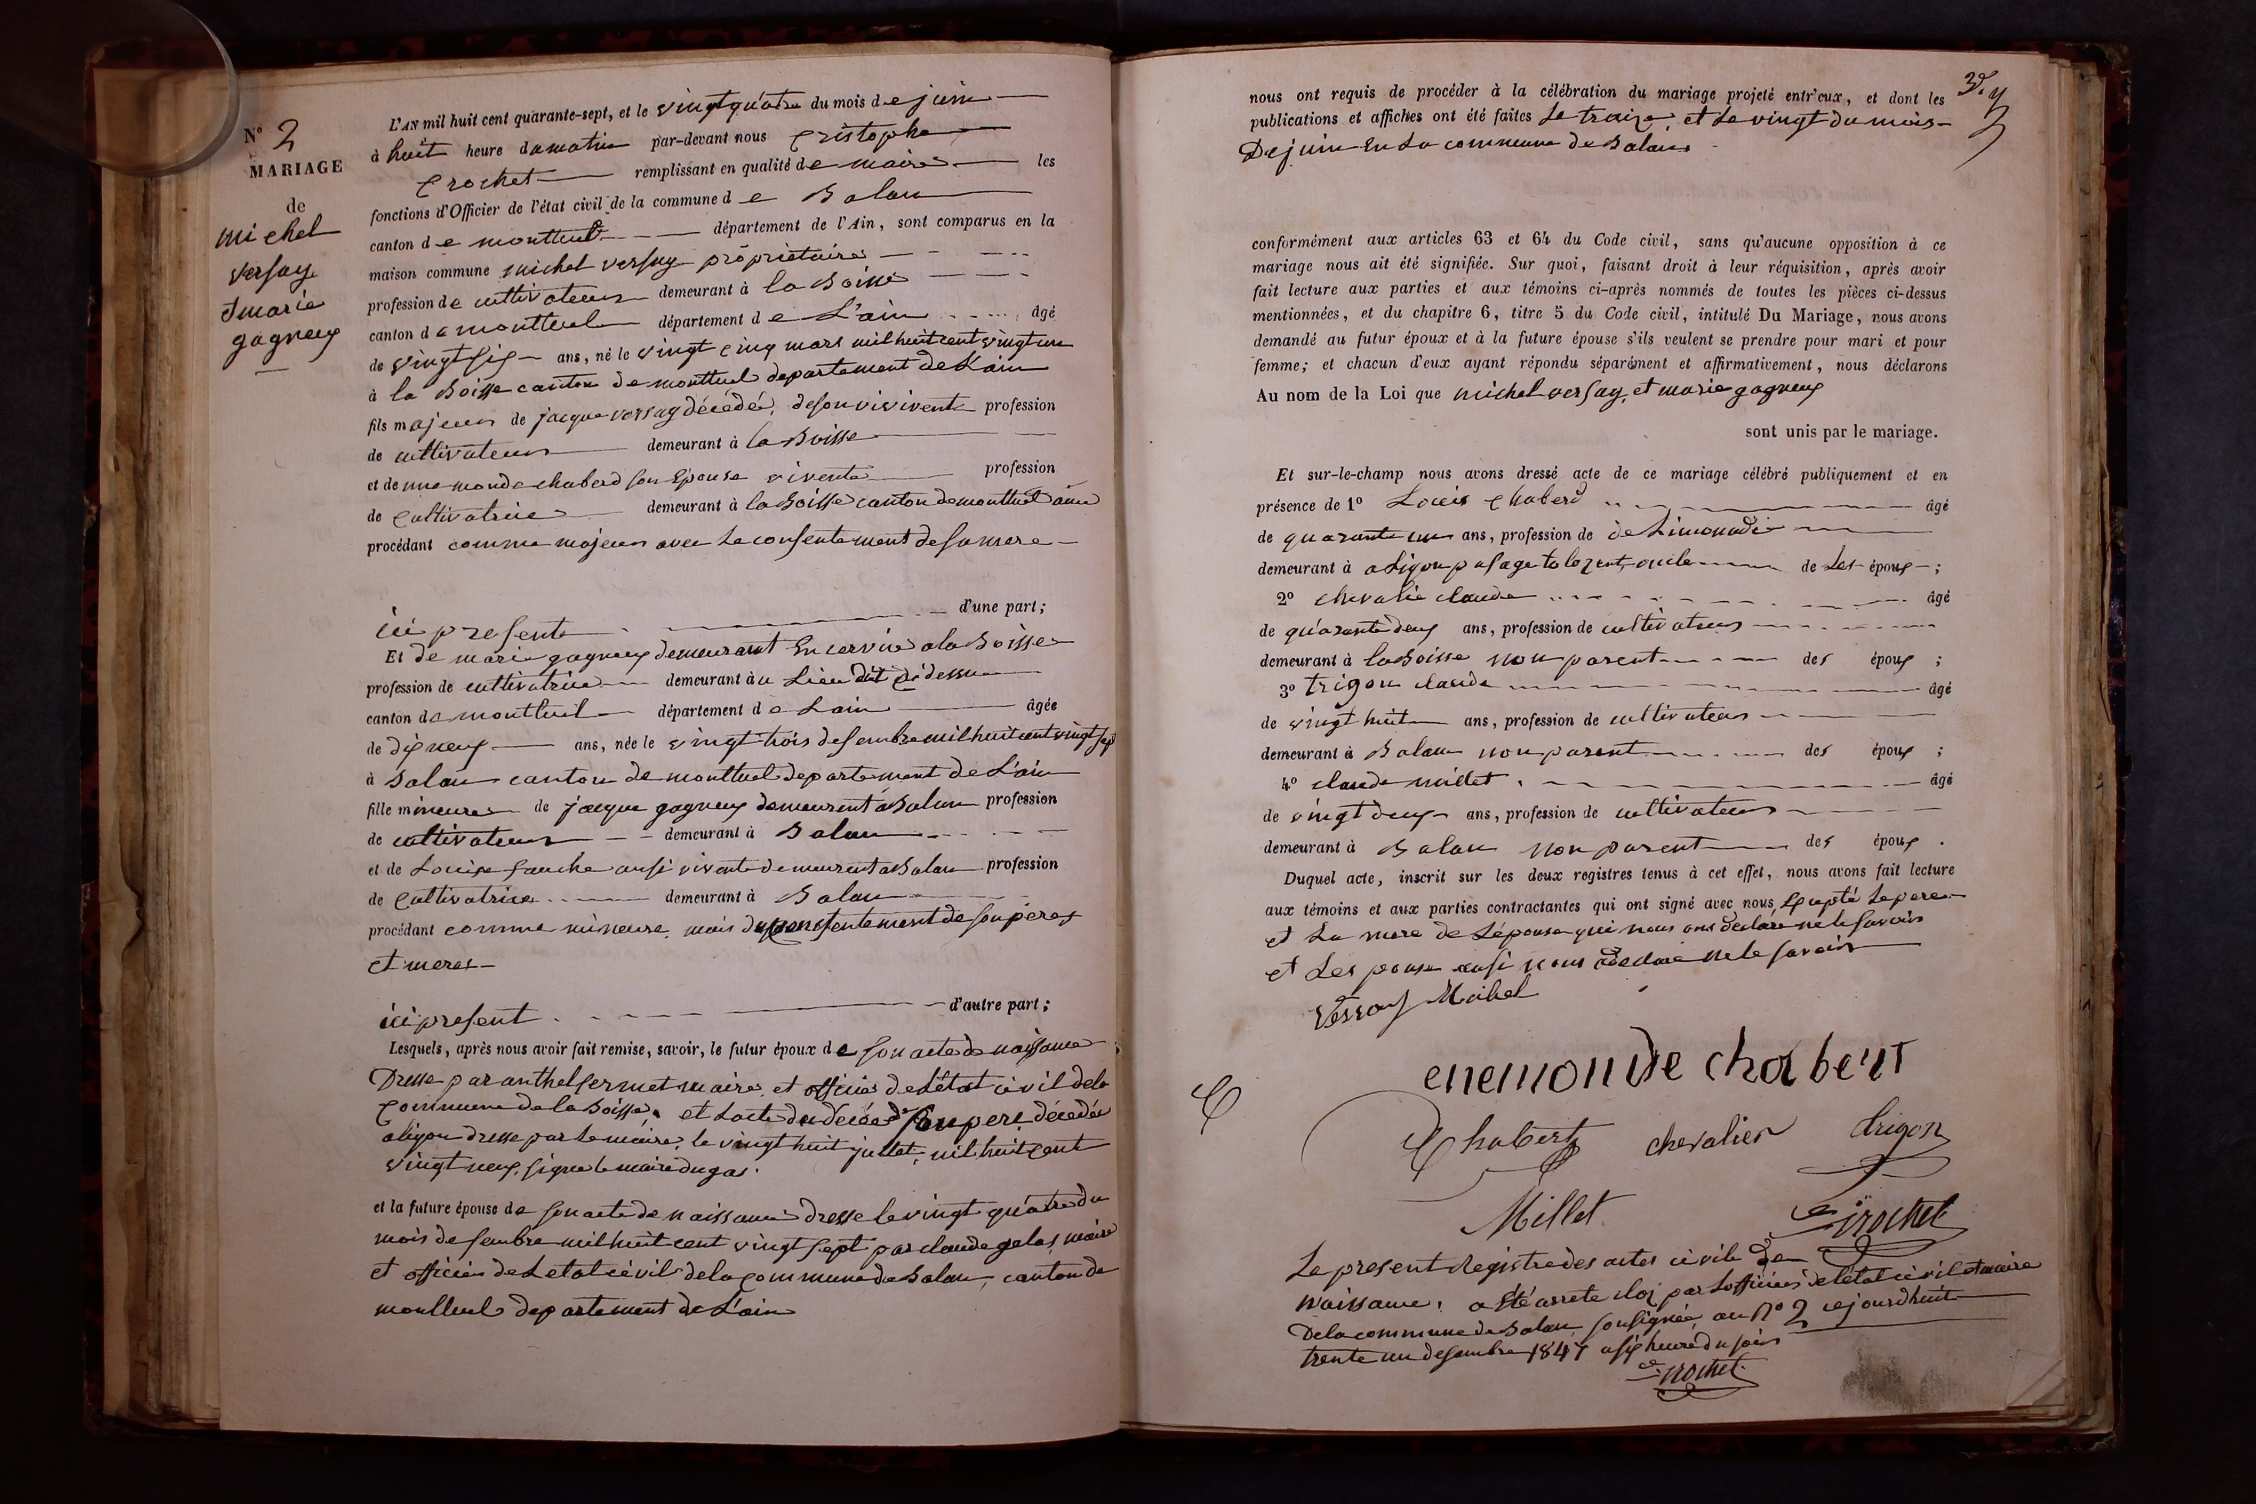 N.º 2
MARIAGE
de
michel
versay
et marie
gagneux
L'AN mil huit cent quarante-sept, et le vingt quatre du mois de juin
à huit heure du matin par-devant nous Cristophe
Crochet remplissant en qualité de maire les
fonctions d'Officier de l'état civil de la commune de Balan
canton de montluel département de l'Ain, sont comparus en la
maison commune michel versay propriétaire
profession de cultivateur demeurant à la Boisse
canton de montluel département de L'ain âgé
de vingt six ans, né le vingt cinq mars mil huit cent vingt un
à la Boisse canton de montluel departement de L'ain
fils majeur de jacque versay décédé, de son vivivent profession
de cultivateur demeurant à la Boisse
et de nnemonde chaberd son Epouse vivente profession
de Cultivatrice demeurant à la Boisse canton de montluel ain
procédant comme majeur avec le consentement de sa mere
ici presente d'une part;
Et de marie gagneux demeurant En cervice a la Boisse
profession de cultivatrice demeurant au Lieu dit Ci dessu
canton de montluel département de Lain âgée
de dix neuf ans, née le vingt trois desembre mil huit cent vingt sept
à Balan canton de montluel departement de L'ain
fille mineure de jacque gagneux demeurent a Balan profession
de cultivateur demeurant à Balan
et de Louise fauche ausi vivente demeurent a Balan profession
de Cultivatrice demeurant à Balan
procédant comme mineure, mais du consentement de son peres
et meres
ici present d'autre part;
Lesquels, après nous avoir fait remise, savoir, le futur époux de son acte de naissance
Dresse par anthel fermet maire et officier de L'état civil de la
Commune de la Boisse, et Lacte du décée de son pere décedée
aligon dresse par le maire, le vingt huit jullet, mil huit cent
vingt neuf signe le maire dugas.
et la future épouse de son acte de naissance dresse le vingt quatre du
mois desembre mil huit cent vingt sept par claude gelas, maire
et officier de L'etat cévil de la commune de Balan, canton de
montluel departement de L'ain
nous ont requis de procéder à la célébration du mariage projeté entr'eux, et dont les
publications et affiches ont été faites Le treize, et Le vingt du mois
De juin En La commune de Balan
conformément aux articles 63 et 64 du Code civil, sans qu'aucune opposition à ce
mariage nous ait été signifiée. Sur quoi, faisant droit à leur réquisition, après avoir
fait lecture aux parties et aux témoins ci-après nommés de toutes les pièces ci-dessus
mentionnées, et du chapitre 6, titre 5 du Code civil, intitulé Du Mariage, nous avons
demandé au futur époux et à la future épouse s'ils veulent se prendre pour mari et pour
femme; et chacun d'eux ayant répondu séparément et affirmativement, nous déclarons
Au nom de la Loi que michel versay, et marie gagneux
sont unis par le mariage.
Et sur-le-champ nous avons dressé acte de ce mariage célébré publiquement et en
présence de 1º Louis Chaberd âgé
de quarante un ans, profession de de Limonadie
demeurant à a Ligon pasage tolozent, oncle de Les époux;
2º chevalié claude âgé
de quarante deux ans, profession de cultivateur
demeurant à la Boisse non parent des époux;
3º trigon claude âgé
de vingt huit ans, profession de cultivateur
demeurant à Balan non parent des époux;
4º claude millet âgé
de vingt deux ans, profession de cultivateur
demeurant à Balan non parent des époux.
Duquel acte, inscrit sur les deux registres tenus à cet effet, nous avons fait lecture
aux témoins et aux parties contractantes qui ont signé avec nous, Exepté Le pere
et La mere de L'épouse qui nous ons declaré ne le savoir
et Les pouse ausi nous a declaré ne le savoir
Versay Michel
enemonde chabert
Chabert chevalier drigon
Millet Crochet
Le present Registre des actes civils de
Naissance, a Été arrete cloz par Lofficier de l'état civil et maire
De la commune de Balan, sousigné, au Nº 2 cejourdhuit
trente un desembre 1847 a six heure du soir
Crochet